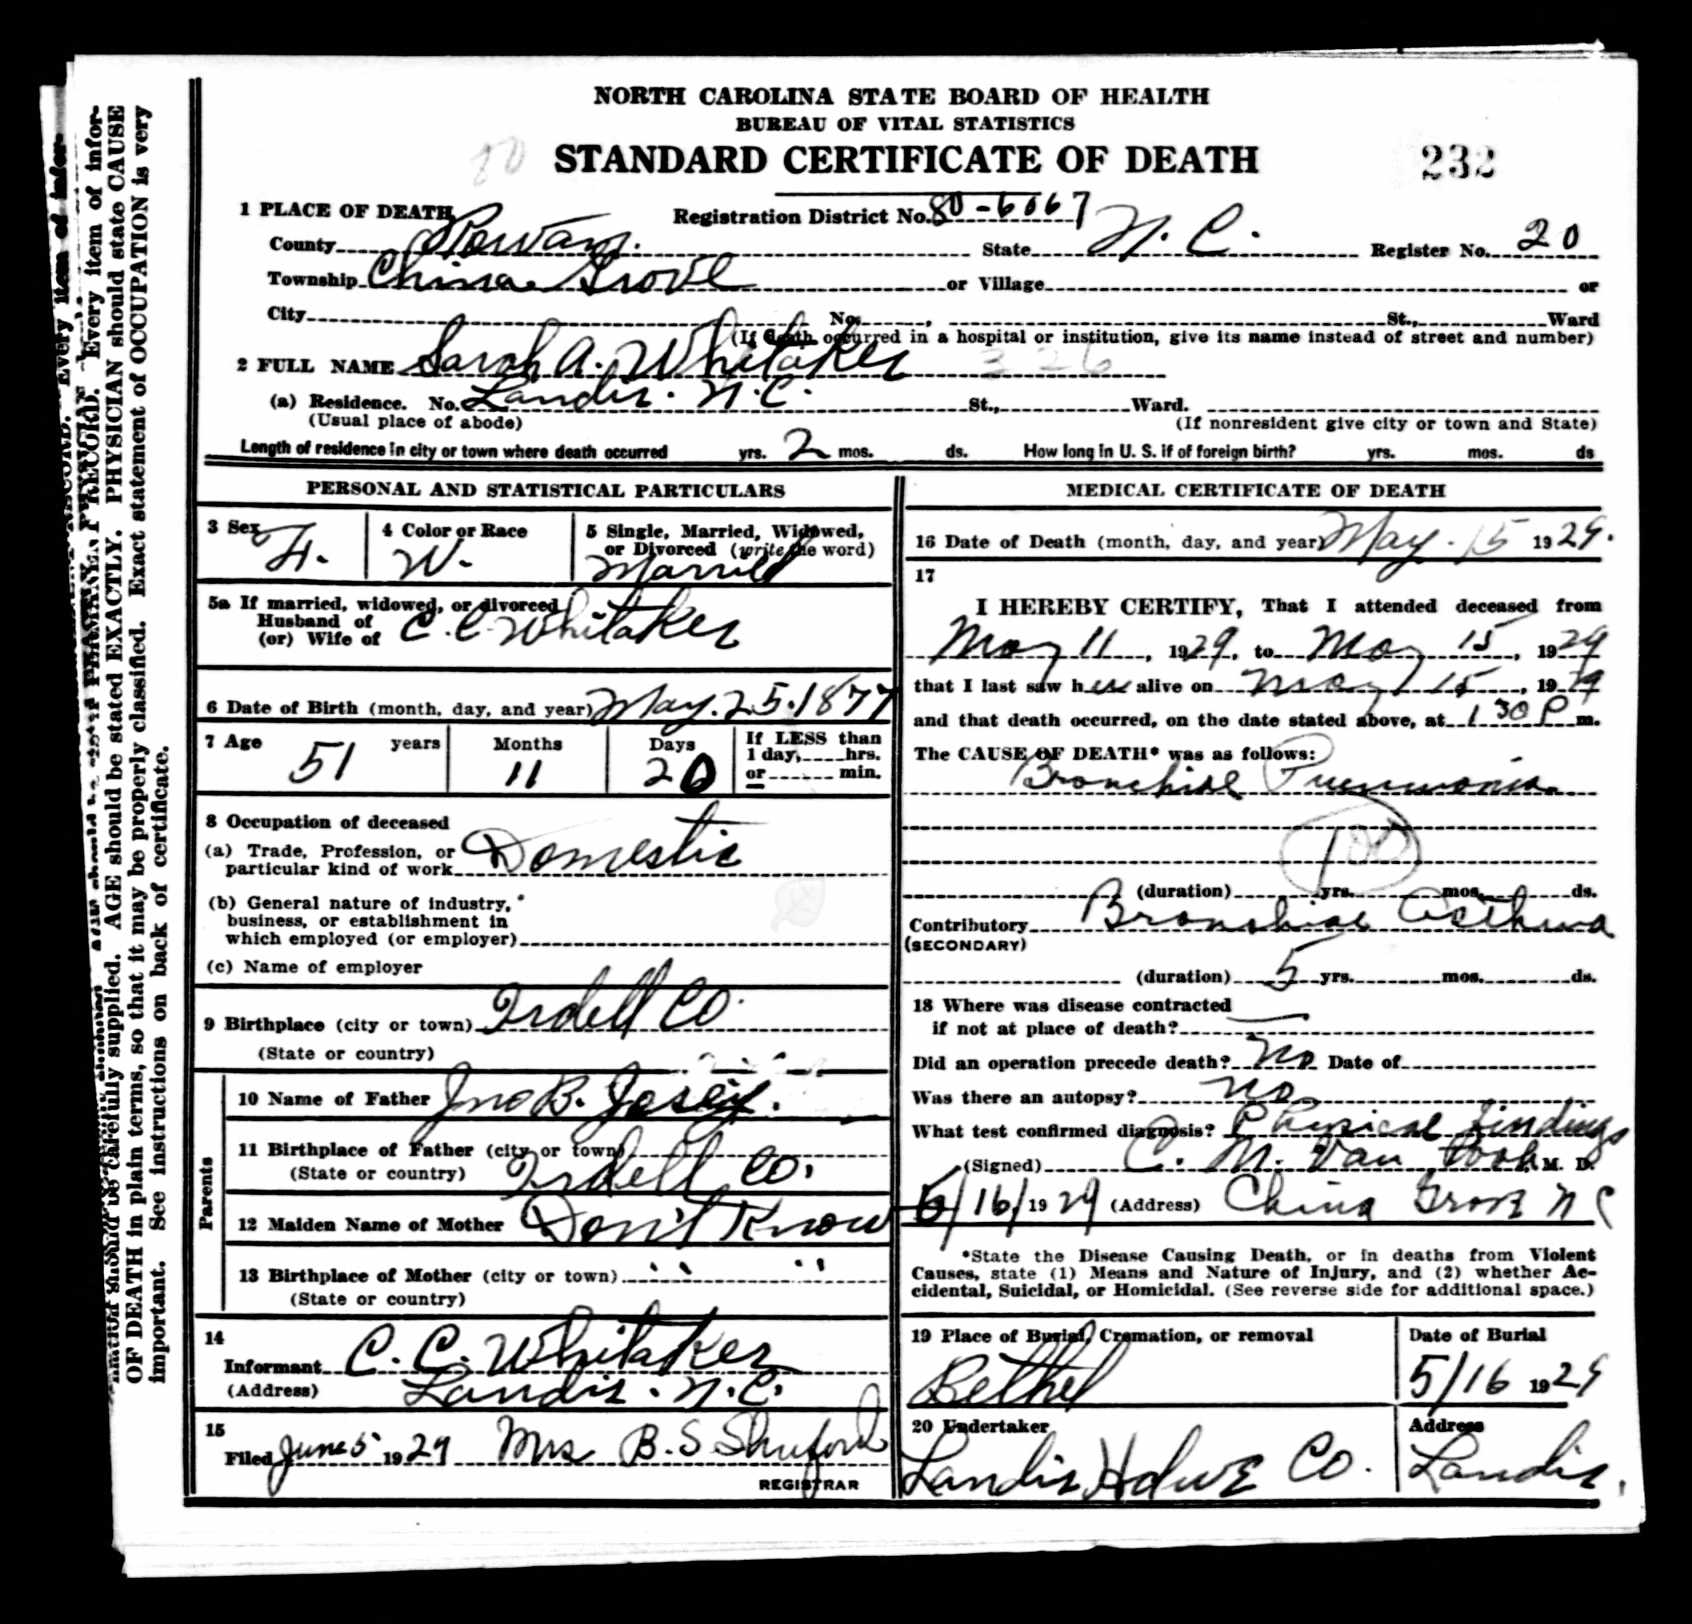 NORTH CAROLINA STATE BOARD OF HEALTH
BUREAU OF VITAL STATISTICS
STANDARD CERTIFICATE OF DEATH
232
1 PLACE OF DEATH
Registration District No. 80-6067
County Rowan. State N. C. Register No. 20
Township China Grove or Village or
City No. , St., Ward
(If death occurred in a hospital or institution, give its name instead of street and number)
2 FULL NAME Sarah A. Whitaker 326
(a) Residence. No. Landis. N.C. St., Ward.
(Usual place of abode) (If nonresident give city or town and State)
Length of residence in city or town where death occurred yrs. 2 mos. ds. How long in U. S. if of foreign birth? yrs. mos. ds
PERSONAL AND STATISTICAL PARTICULARS
3 Sex F. 4 Color or Race W. 5 Single, Married, Widowed, or Divorced (write the word) Married
5a If married, widowed, or divorced
Husband of
(or) Wife of C. C. Whitaker
6 Date of Birth (month, day, and year) May. 25. 1877
7 Age 51 years Months 11 Days 20 If LESS than
1 day, hrs.
or min.
8 Occupation of deceased
(a) Trade, Profession, or
particular kind of work Domestic
(b) General nature of industry,
business, or establishment in
which employed (or employer)
(c) Name of employer
9 Birthplace (city or town) Irdell Co.
(State or country)
Parents
10 Name of Father Jno B.
11 Birthplace of Father (city or town)
(State or country) Irdell Co.
12 Maiden Name of Mother Don't Know
13 Birthplace of Mother (city or town) " "
(State or country)
14
Informant C. C. Whitaker
(Address) Landis. N.C.
15
Filed June 5 1929 Mrs B. S. Shuford
REGISTRAR
MEDICAL CERTIFICATE OF DEATH
16 Date of Death (month, day, and year) May. 15 1929.
17
I HEREBY CERTIFY, That I attended deceased from
May 11, 1929, to May 15, 1929
that I last saw her alive on May 15, 1929
and that death occurred, on the date stated above, at 1 30 P m.
The CAUSE OF DEATH* was as follows:
Bronchial Pneumonia
100
(duration) yrs. mos. ds.
Contributory Bronchial Asthma
(SECONDARY)
(duration) 5 yrs. mos. ds.
18 Where was disease contracted
if not at place of death?
Did an operation precede death? No Date of
Was there an autopsy? No
What test confirmed diagnosis? Physical findings
(Signed) C. M. Van Poole M. D.
5/16/1929 (Address) China Grove N C
*State the Disease Causing Death, or in deaths from Violent
Causes, state (1) Means and Nature of Injury, and (2) whether Ac-
cidental, Suicidal, or Homicidal. (See reverse side for additional space.)
19 Place of Burial, Cremation, or removal Date of Burial
Bethel 5/16 1929
20 Undertaker Address
Landis Hdwe Co. Landis.
mation should be carefully supplied. AGE should be stated EXACTLY. PHYSICIAN should state CAUSE
OF DEATH in plain terms, so that it may be properly classified. Exact statement of OCCUPATION is very
important. See instructions on back of certificate.